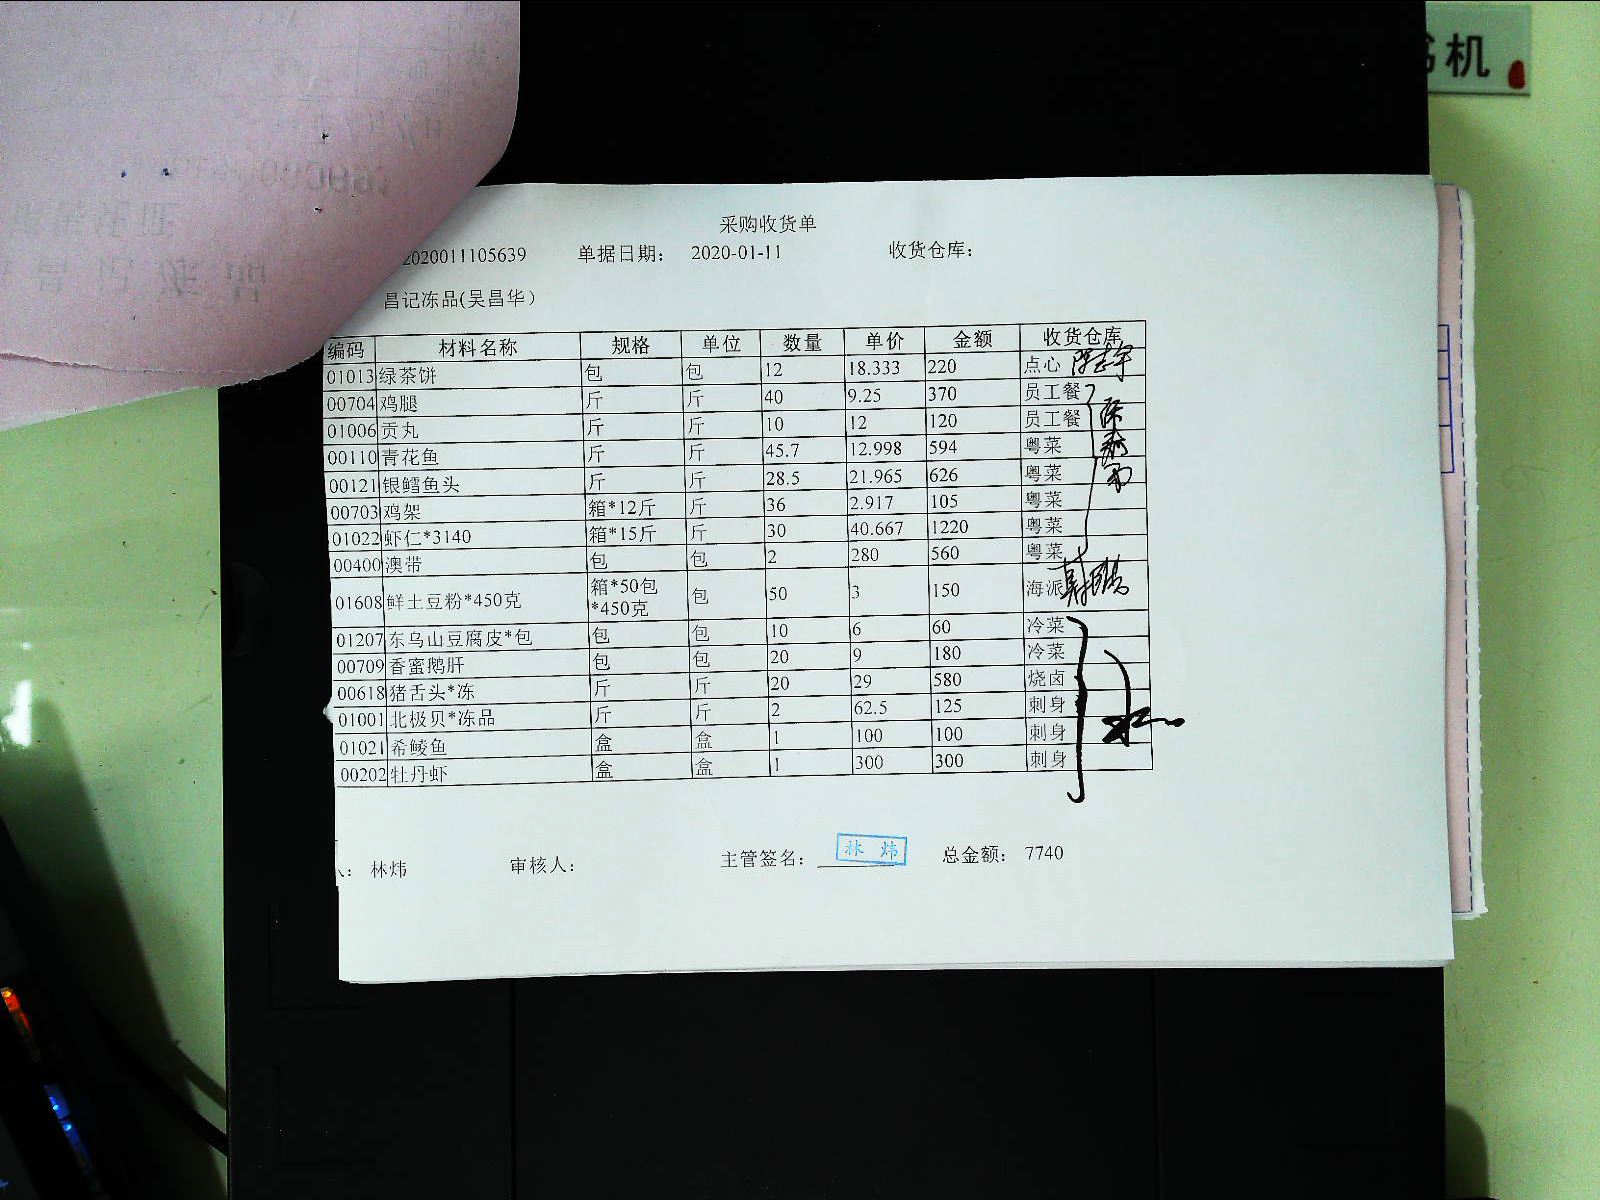 书机
采购收货单
2020011105639 单据日期: 2020-01-11 收货仓库:
昌记冻品(吴昌华)
编码 材料名称 规格 单位 数量 单价 金额 收货仓库
01013 绿茶饼 包 包 12 18.333 220 点心
00704 鸡腿 斤 斤 40 9.25 370 员工餐
01006 贡丸 斤 斤 10 12 120 员工餐
00110 青花鱼 斤 斤 45.7 12.998 594 粤菜
00121 银鳕鱼头 斤 斤 28.5 21.965 626 粤菜
00703 鸡架 箱*12斤 斤 36 2.917 105 粤菜
01022 虾仁*3140 箱*15斤 斤 30 40.667 1220 粤菜
00400 澳带 包 包 2 280 560 粤菜
01608 鲜土豆粉*450克 箱*50包*450克 包 50 3 150 海派
01207 东乌山豆腐皮*包 包 包 10 6 60 冷菜
00709 香蜜鹅肝 包 包 20 9 180 冷菜
00618 猪舌头*冻 斤 斤 20 29 580 烧卤
01001 北极贝*冻品 斤 斤 2 62.5 125 刺身
01021 希鲮鱼 盒 盒 1 100 100 刺身
00202 牡丹虾 盒 盒 1 300 300 刺身
人: 林炜 审核人: 主管签名: 林炜 总金额: 7740